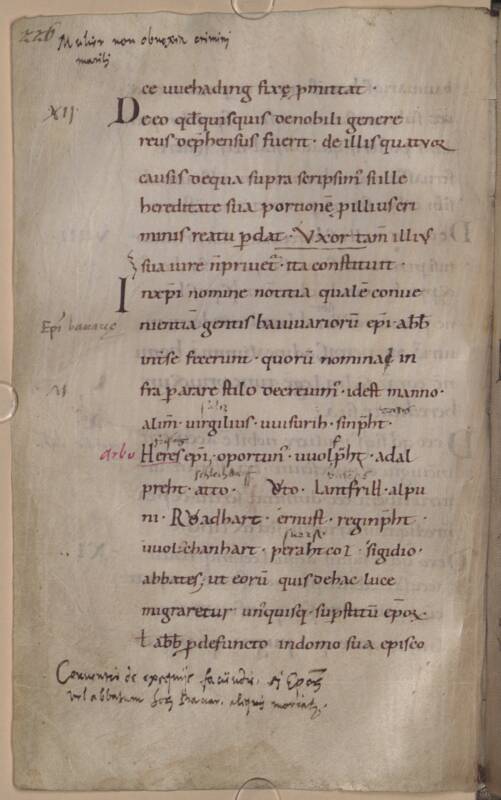 226
Mulier non obnoxia crimini
mariti
ce uuehading fixę p̄mittat ·
XII
De eo qđ quisquis de nobili genere
reus dep̄hensus fuerit · de illis quatuor
causis de qua supra scripsim᷒ si ille
hereditate sua portionē p illius cri
minis reatu p̄dat · Vxor tam̄ illius
sua iure n̄ priuet᷒ · ita constituit ·
In xp̄i nomine notitia qualē conue
Ep̄i bauarię
nientiā gentis baiuuariorū ep̄i · abb̄
int̄ se fixerunt · quorū nomina in
fra parare stilo decreuim᷒ · id est manno ·
alim · uirgilius · uuisurih · sinp̄ht ·
arbo
Heres ep̄i, oportun᷒ · uuolp̄ht · adal
preht · atto · Uto · lantfrih · alpu
ni · Roadhart · ernust · reginp̄ht ·
uuolchanhart · perahtcoz · sigidio ·
abbates, ut eorū quis de hac luce
migraretur unusquisq; sup̄stitū ep̄orum
ł abb̄ p defuncto in domo sua episco
Conuentio de exequiis faciendis, si Ep̄orum
vel abbatum Bauar. aliquis moriatur.